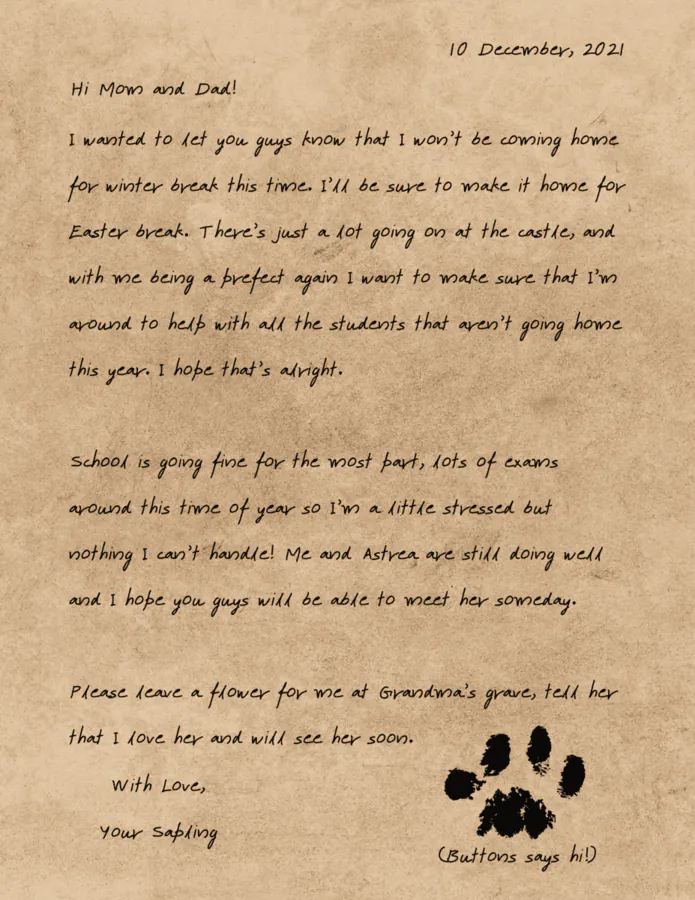 10 December, 2021
Hi Mom and Dad!
I wanted to let you guys know that I won't be coming home
for winter break this time. I'll be sure to make it home for
Easter break. There's just a lot going on at the castle, and
with me being a prefect again I want to make sure that I'm
around to help with all the students that aren't going home
this year. I hope that's alright.
School is going fine for the most part, lots of exams
around this time of year so I'm a little stressed but
nothing I can't handle! Me and Astrea are still doing well
and I hope you guys will be able to meet her someday.
Please leave a flower for me at Grandma's grave, tell her
that I love her and will see her soon.
With Love,
Your Sapling
(Buttons says hi!)